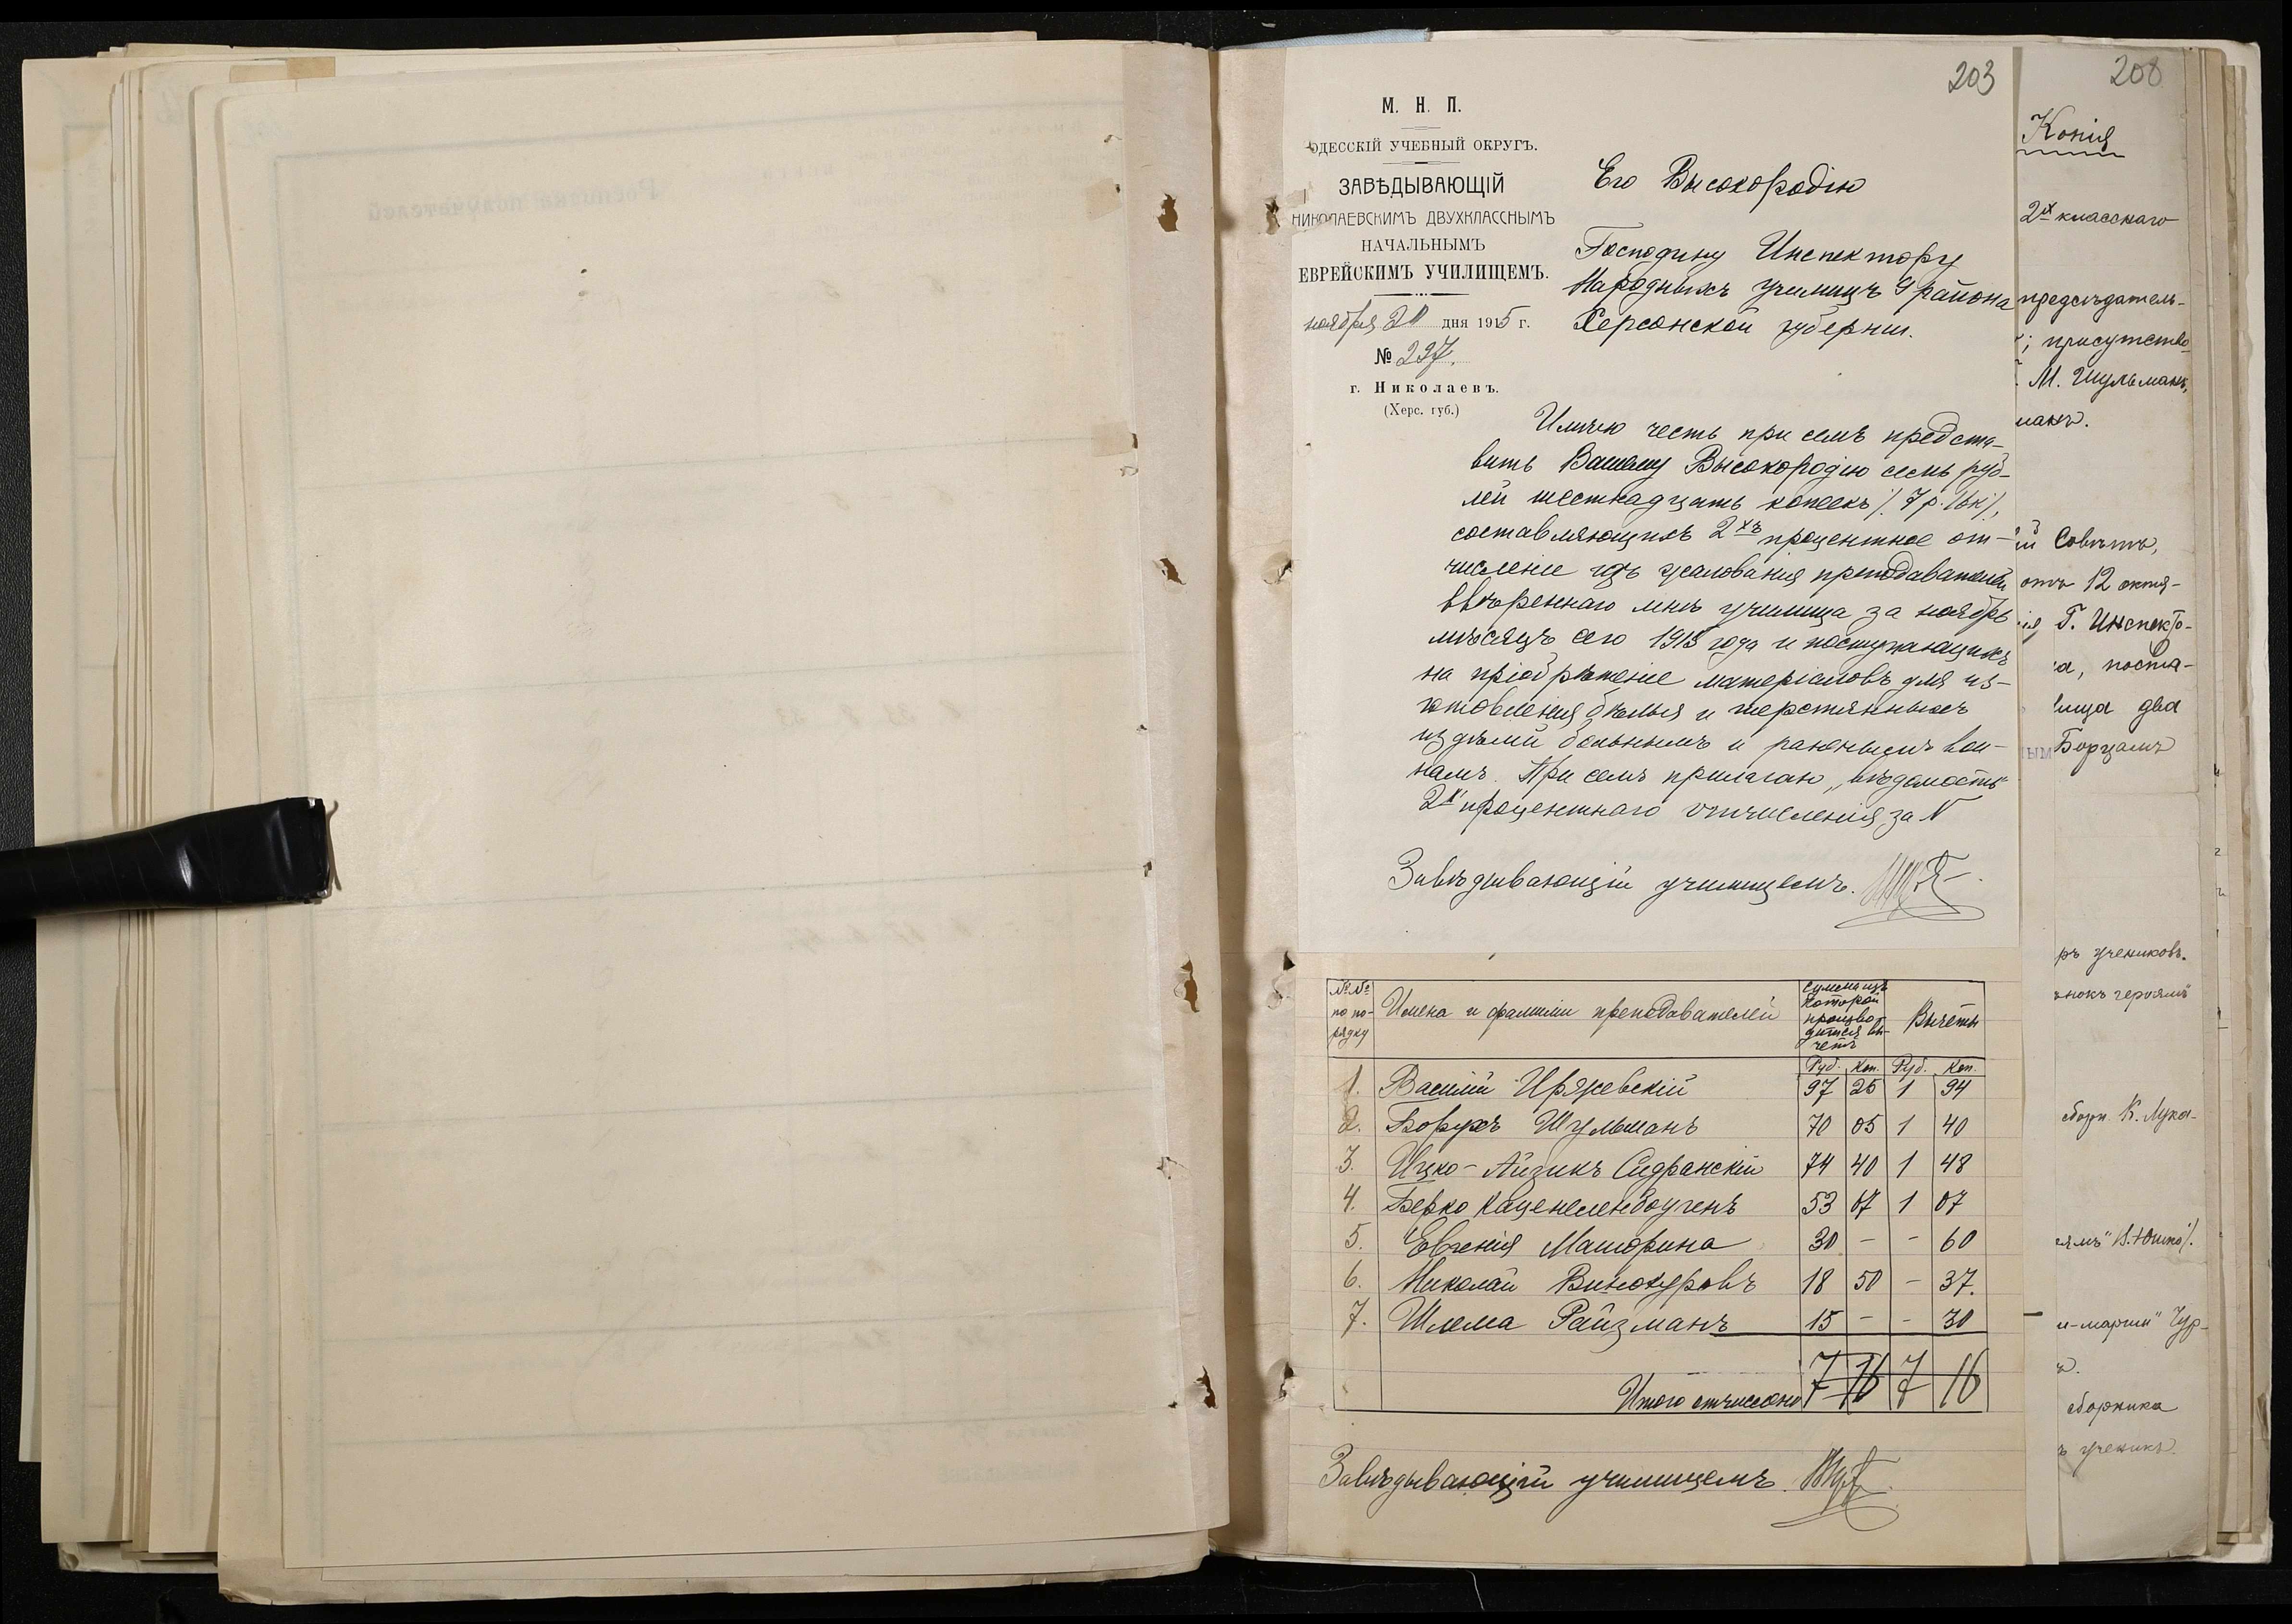 203
М. Н. П.
ОДЕССКІЙ УЧЕБНЫЙ ОКРУГЪ.
ЗАВѢДЫВАЮЩІЙ
НИКОЛАЕВСКИМЪ ДВУХКЛАССНЫМЪ
НАЧАЛЬНЫМЪ
ЕВРЕЙСКИМЪ УЧИЛИЩЕМЪ.
ноября 20 дня 1915 г.
№ 297.
г. Николаевъ.
(Херс. губ.)
Его Высокородію
Господину Инспектору
Народныхъ училищъ 9 района
Херсонской губерніи.
Имѣю честь при семъ предста-
вить Вашему Высокородію семь руб-
лей шестнадцать копеекъ /. 7 р. 16 к /.,
составляющихъ 2хъ процентное от-
численіе изъ жалованія преподавателей
ввѣреннаго мнѣ училища за ноябрь
мѣсяцъ сего 1915 года и поступающихъ
на пріобрѣтеніе матеріаловъ для из-
готовленія бѣлья и шерстянныхъ
издѣлій больнымъ и раненымъ вои-
намъ. При семъ прилагаю „вѣдомость
2х процентнаго отчисленія за N
Завѣдывающій училищемъ.
№№ по по-рядку Имена и фамиліи преподавателей Сумма изъ которой производится вы-четъ Вычеты
Руб. Коп. Руб. Коп.
1. Василій Иряжевскій 97 25 1 94
2. Борухъ Шульманъ 70 05 1 40
3. Ицко-Айзикъ Сидранскій 74 40 1 48
4. Берко Каценеленбоугенъ 53 07 1 07
5. Евгенія Машорина 30 - - 60
6. Николай Винокуровъ 18 50 - 37.
7. Шлема Райзманъ 15 - - 30
Итого отчислено 7 16 7 16
Завѣдывающій училищемъ.
208
Копія
2х класснаго
предсѣдатель-
; присутство-
М. Шульманъ,
манъ.
й Совѣтъ,
отъ 12 октя-
ія, Г. Инспекто-
а, поста-
лища два
Борцамъ
ръ учениковъ.
енокъ героямъ"
сборн. К. Лука-
и-марши" Чур-
ъ.
сборника
ъ ученикъ.